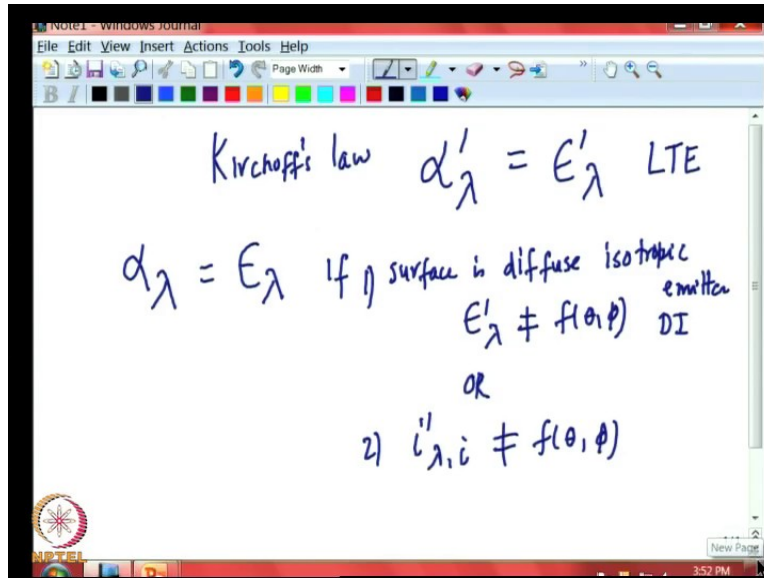 Note1 - Windows Journal
File Edit View Insert Actions Tools Help
Page Width
B I
Kirchoff's law α'λ = ε'λ LTE
αλ = ελ If 1) surface is diffuse isotropic
emitter
ε'λ ≠ f(θ,φ) DI
OR
2) i'λ,i ≠ f(θ,φ)
NPTEL
New Page
3:52 PM